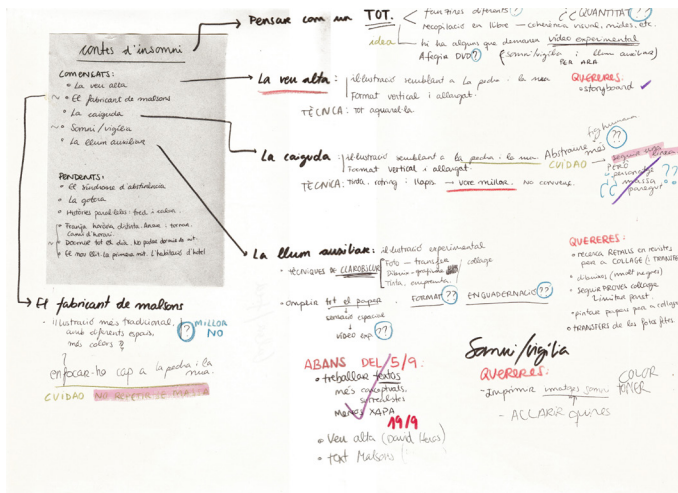 contes d'insomni
COMENÇATS:
• La veu alta
• El fabricant de malsons
• La caiguda
• Somni/vigília
• La llum auxiliar
PENDENTS:
• El síndrome d'abstinència
• La gotera
• Històries paral·leles: foc i
• Franja horària distinta. Anar i tornar.
Canvi d'horari.
• Dormir tot el dia. No poder dormir de nit.
• El nou llit. La primera nit. L'habitació d'hotel
Pensar com un TOT.
fanzines diferents?
¿¿QUANTITAT??
recopilació en llibre → coherència visual, mides, etc.
idea
hi ha alguns que demanen vídeo experimental
Afegir DVD?
(somni/vigília i llum auxiliar)
PER ARA
La veu alta:
il·lustració semblant a La pedra i la nua
Format vertical i allargat.
TÈCNICA: Tot aquarel·la
QUERERES:
• storyboard
La caiguda:
il·lustració semblant a la pedra i la nua.
Format vertical i allargat.
TÈCNICA: Tinta, rotring i llapis. → vore millor. no convenç.
fig humana
Abstraure més ??
CUIDAO
seguir
PERÒ
personatge
massa
paregut
??
La llum auxiliar:
il·lustració experimental
• TÈCNIQUES DE CLAROBSCUR
Foto - transfer
Dibuix - grafit
Tinta, empremta
collage
• omplir tot el paper. FORMAT?? ENQUADERNACIÓ??
sensació espacial
VÍDEO EXP. ??
QUERERES:
• recerca RETALLS en revistes
per a COLLAGE (i TRANSFER)
• dibuixos (molt negres)
• seguir PROVES collage
Limitar paret.
• pintar papers per a collage
• TRANSFERS de les fotos fetes.
El fabricant de malsons
• il·lustració més tradicional,
amb diferents espais,
més colors?
? MILLOR
NO
enfocar-ho cap a la pedra i la
nua.
CUIDAO NO REPETIR-SE MASSA
ABANS DEL 5/9:
• treballar textos
més conceptuals,
surrealistes
Menos XAPA
19/9
• Veu alta (David Lleras)
• text Malsons
Somni/vigília
QUERERES:
- Imprimir imatges somni
COLOR
TONER
- ACLARIR quines